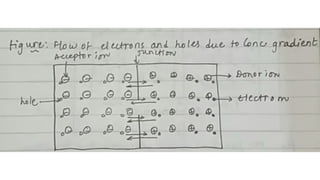 Figure: Flow of electrons and holes due to Conc gradient
Acceptor ion Junction
Donor ion
hole
electron